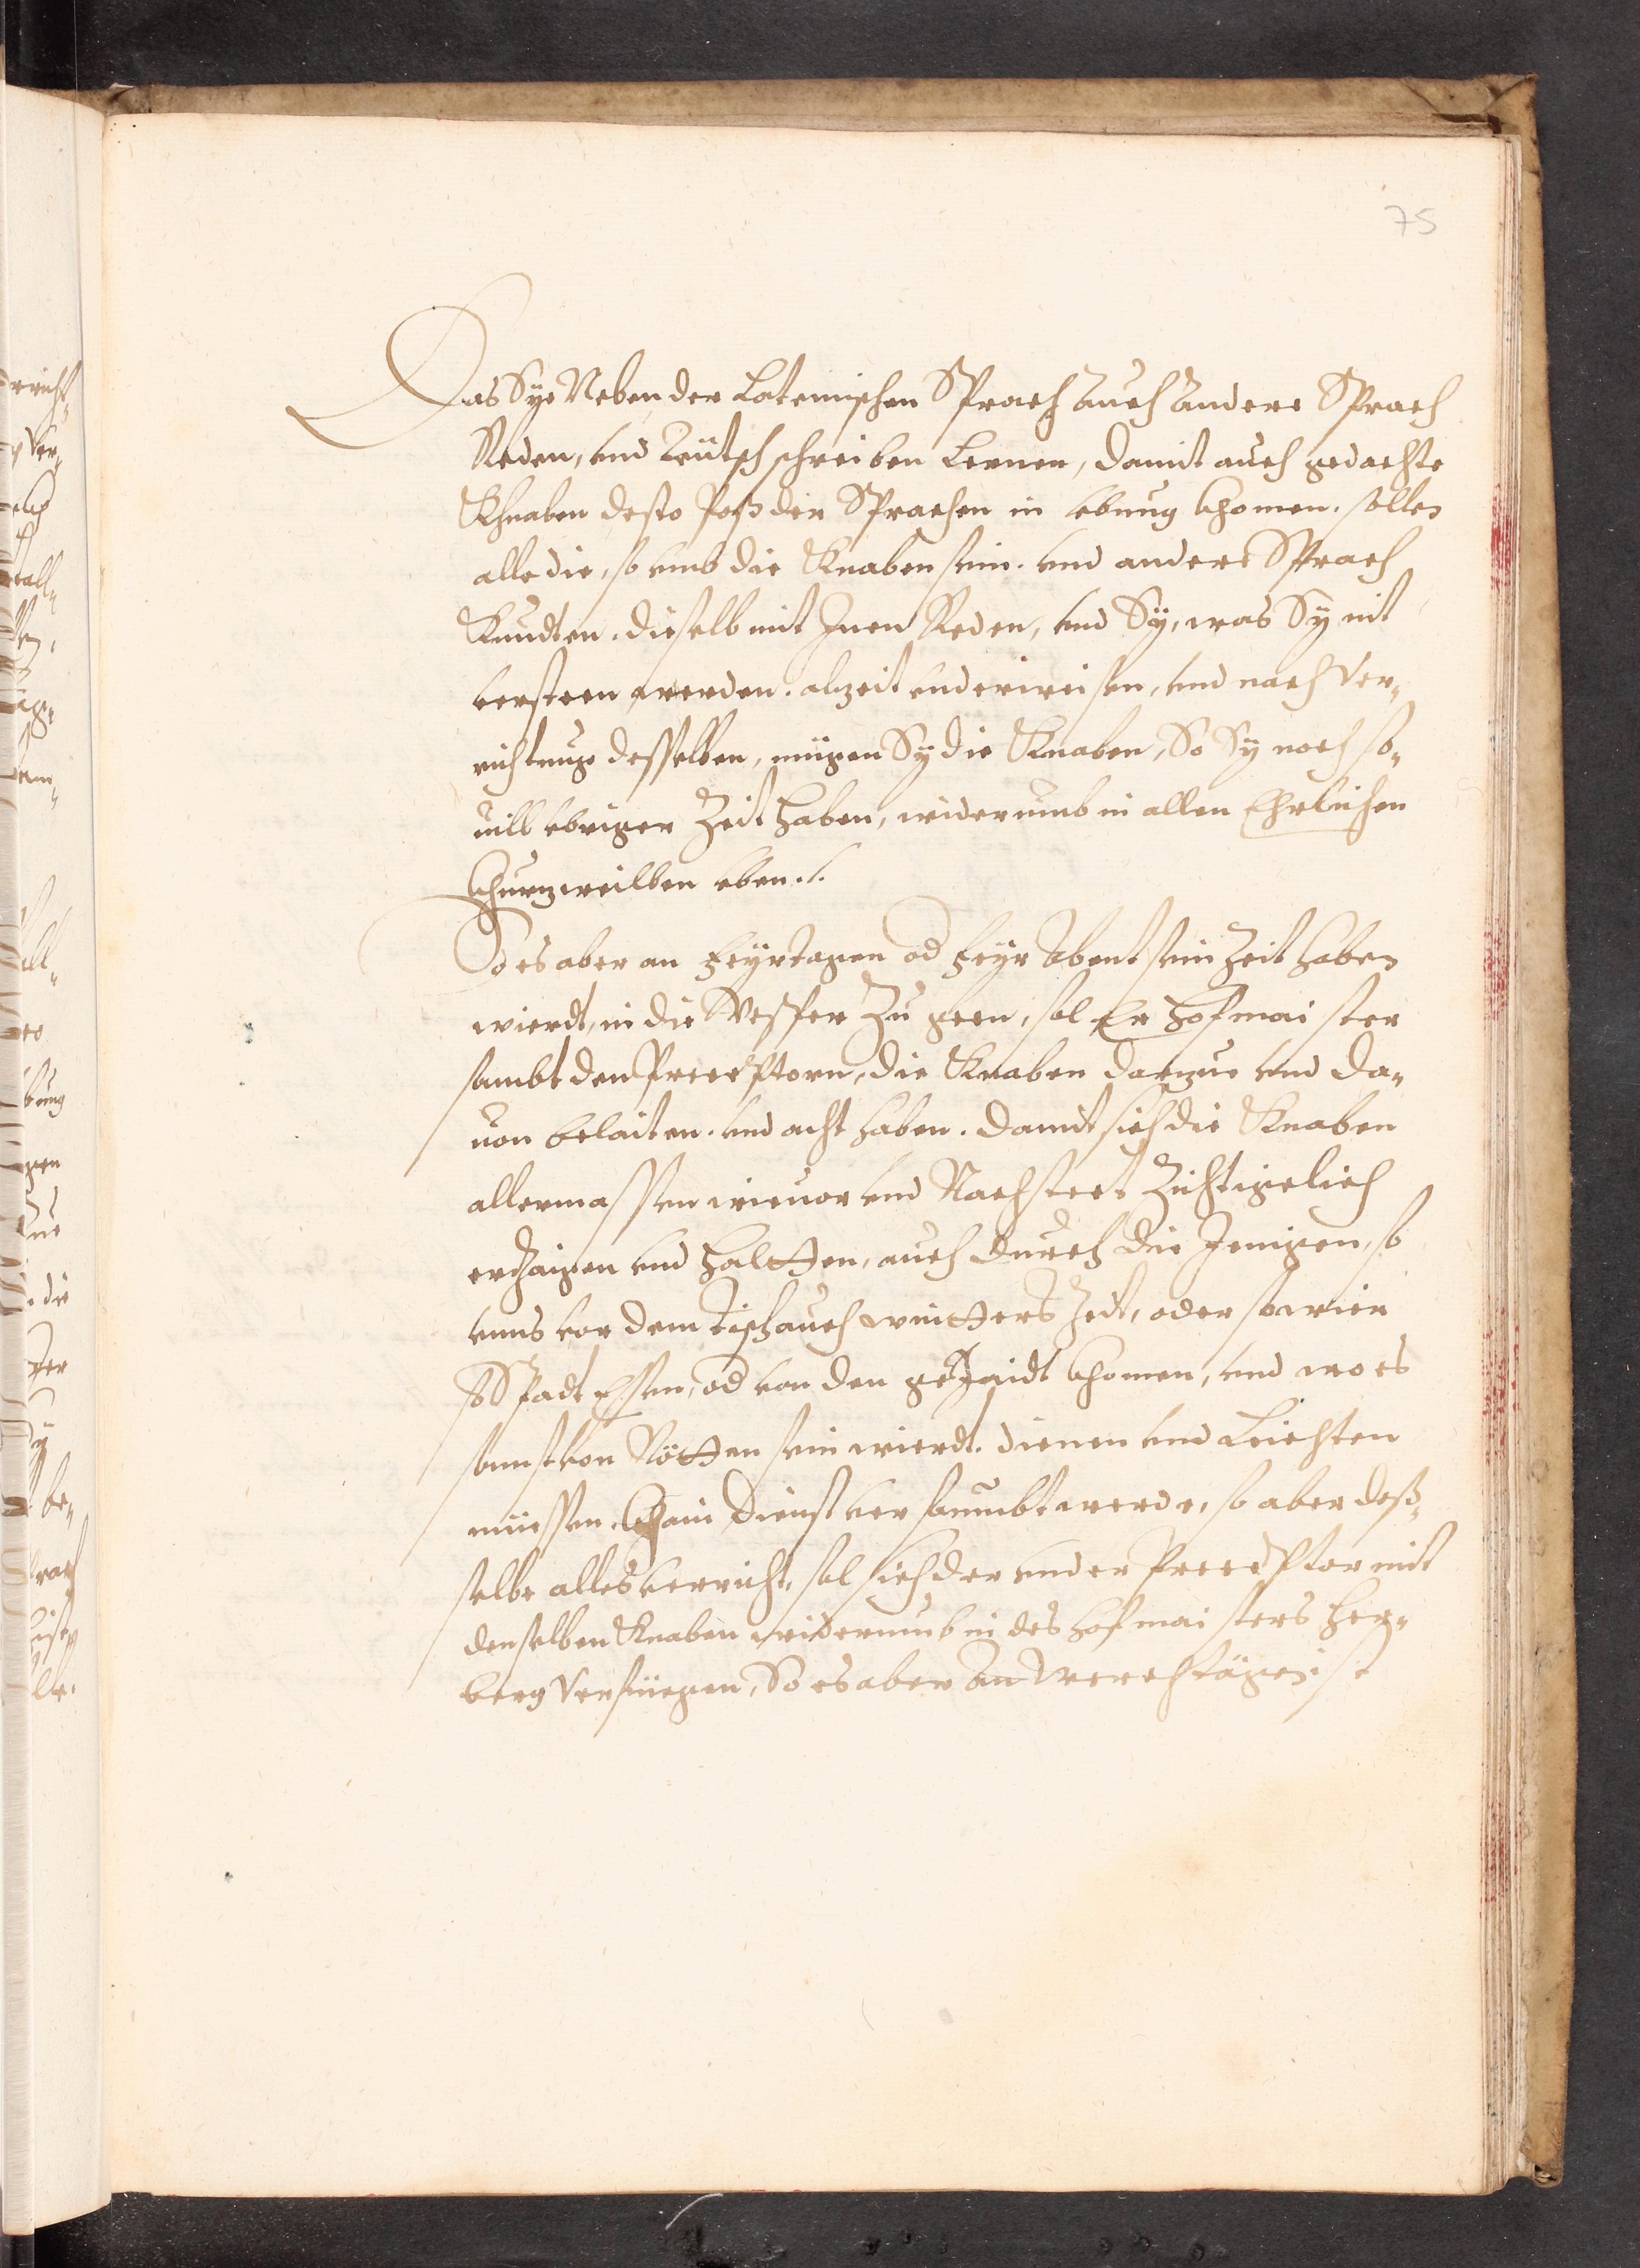 75
Das Sye Neben der Lateinischen Sprach auch andere Sprach
Reden, vnd Teütsch schreiben Lernen, damit auch gedachte
Khnaben desto Paß der Sprachen in vbung khomen. sollen
alle die, so vmb die Knaben sein. vnd andere Sprach
Kundten. dieselb mit Inen Reden, vnd Sy, was Sy nit
versteen werden. alzeit vnderweisen, vnd nach Ver¬
richtung desselben, mügen Sy die Knaben, So Sy noch so¬
uill vbriger Zeit haben, widerumb in allen Ehrlichen
Churzweillen vben./.
So es aber an Feyrtagen od Feyr Abent sein Zeit haben
wierdt, in die Vesper Zu geen, sol Er Hofmaister
sambt den Preceptorn, die Knaben darzue vnd da¬
uon belaiten. vnd acht haben. damit sich die Knaben
allermassen wieuor vnd Nachsteet Züchtigclich
erzaigen vnd Haltten, auch durch die Jenigen, so
vnns vor dem Tisch auch wintters Zeit, oder so wier
so Spadt Essen, od von den gejaidt khomen, vnd wo es
sonnst von Nötten sein wierdt. dienen vnd Leichten
müessen. Chain Dienst versaumbt werde, so aber deß¬
selbe alles verricht, sol sich der vnder Preceptor mit
denselben Knaben widerumb in des Hofmaisters Her¬
berg Verfüegen, So es aber an Werchtägen ist